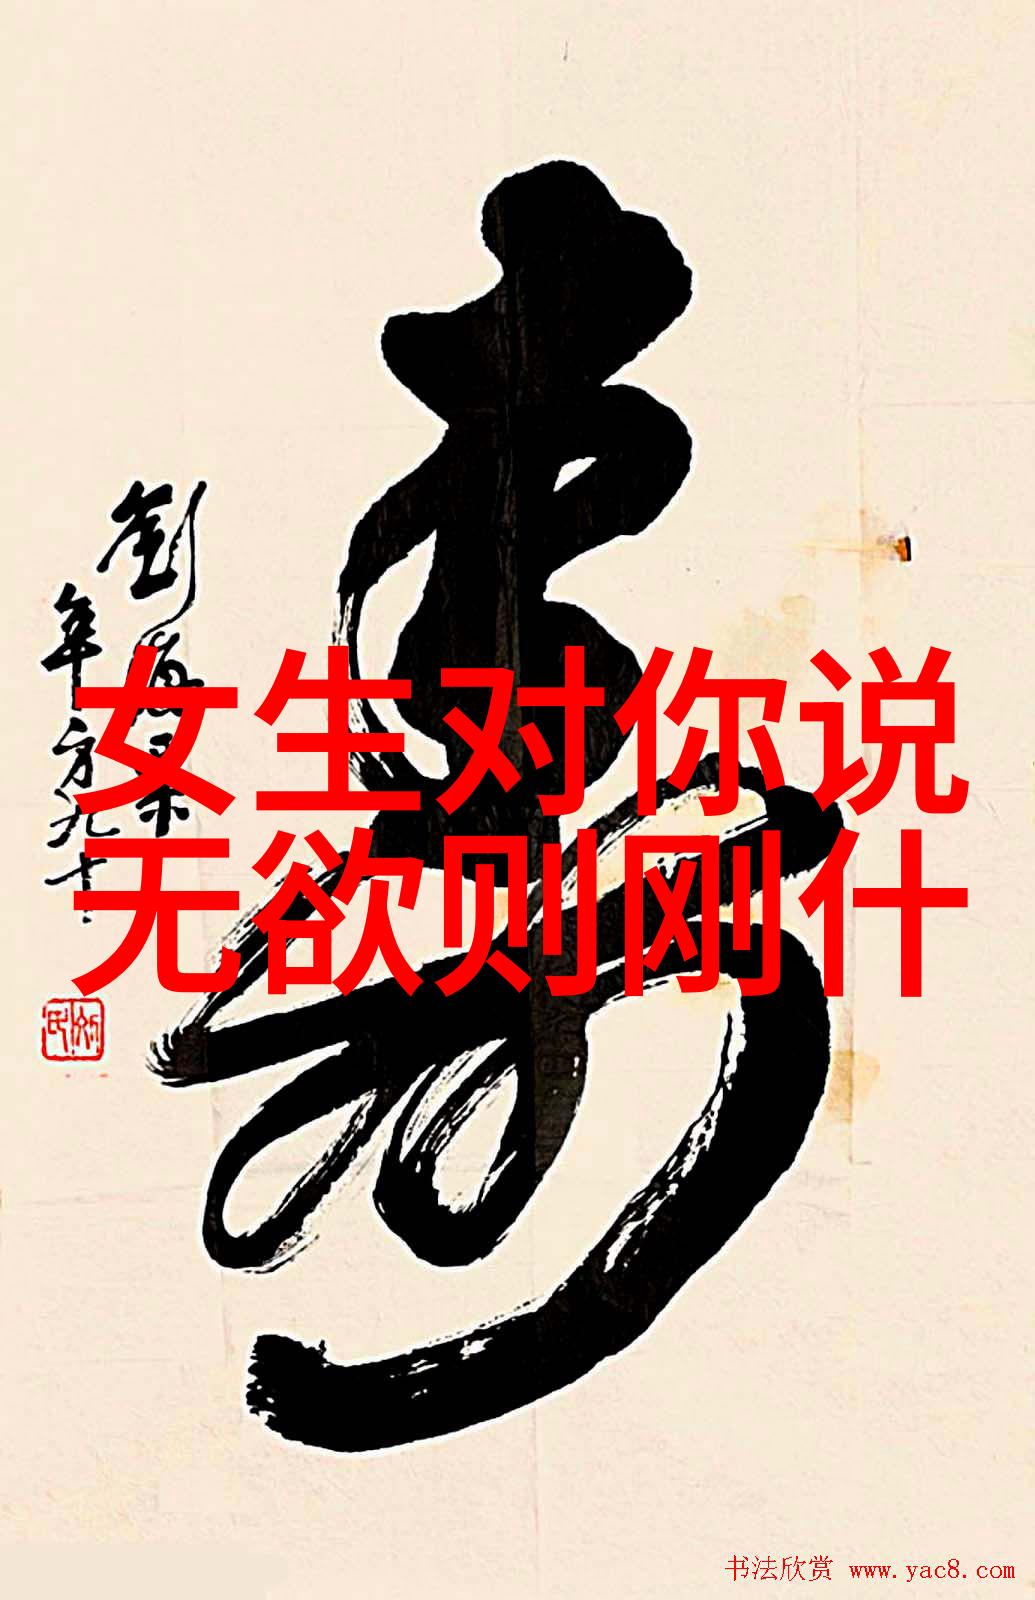 寿
劉海粟
年方九十
女生对你说
无欲则刚什
书法欣赏 www.yac8.com